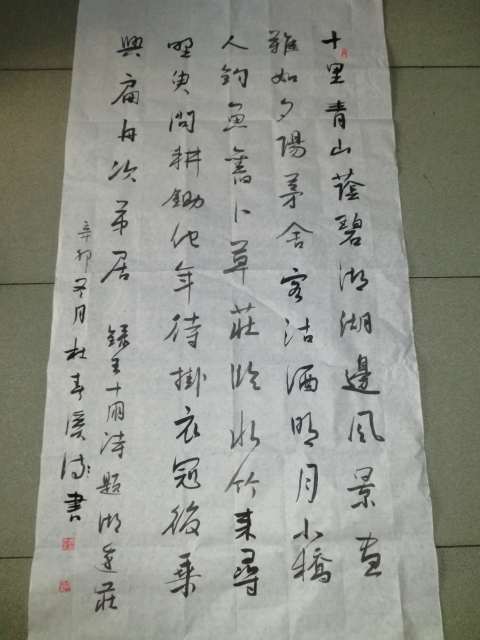 十里青山蔭碧湖湖邊風景畫
難如夕陽茅舍客沽酒明月小橋
人釣魚舊卜草莊臨水竹來尋
野叟問耕鋤他年待掛衣冠後乘
興扁舟次第居 錄王十朋詩題湖邊莊
辛卯冬月杜春溪書